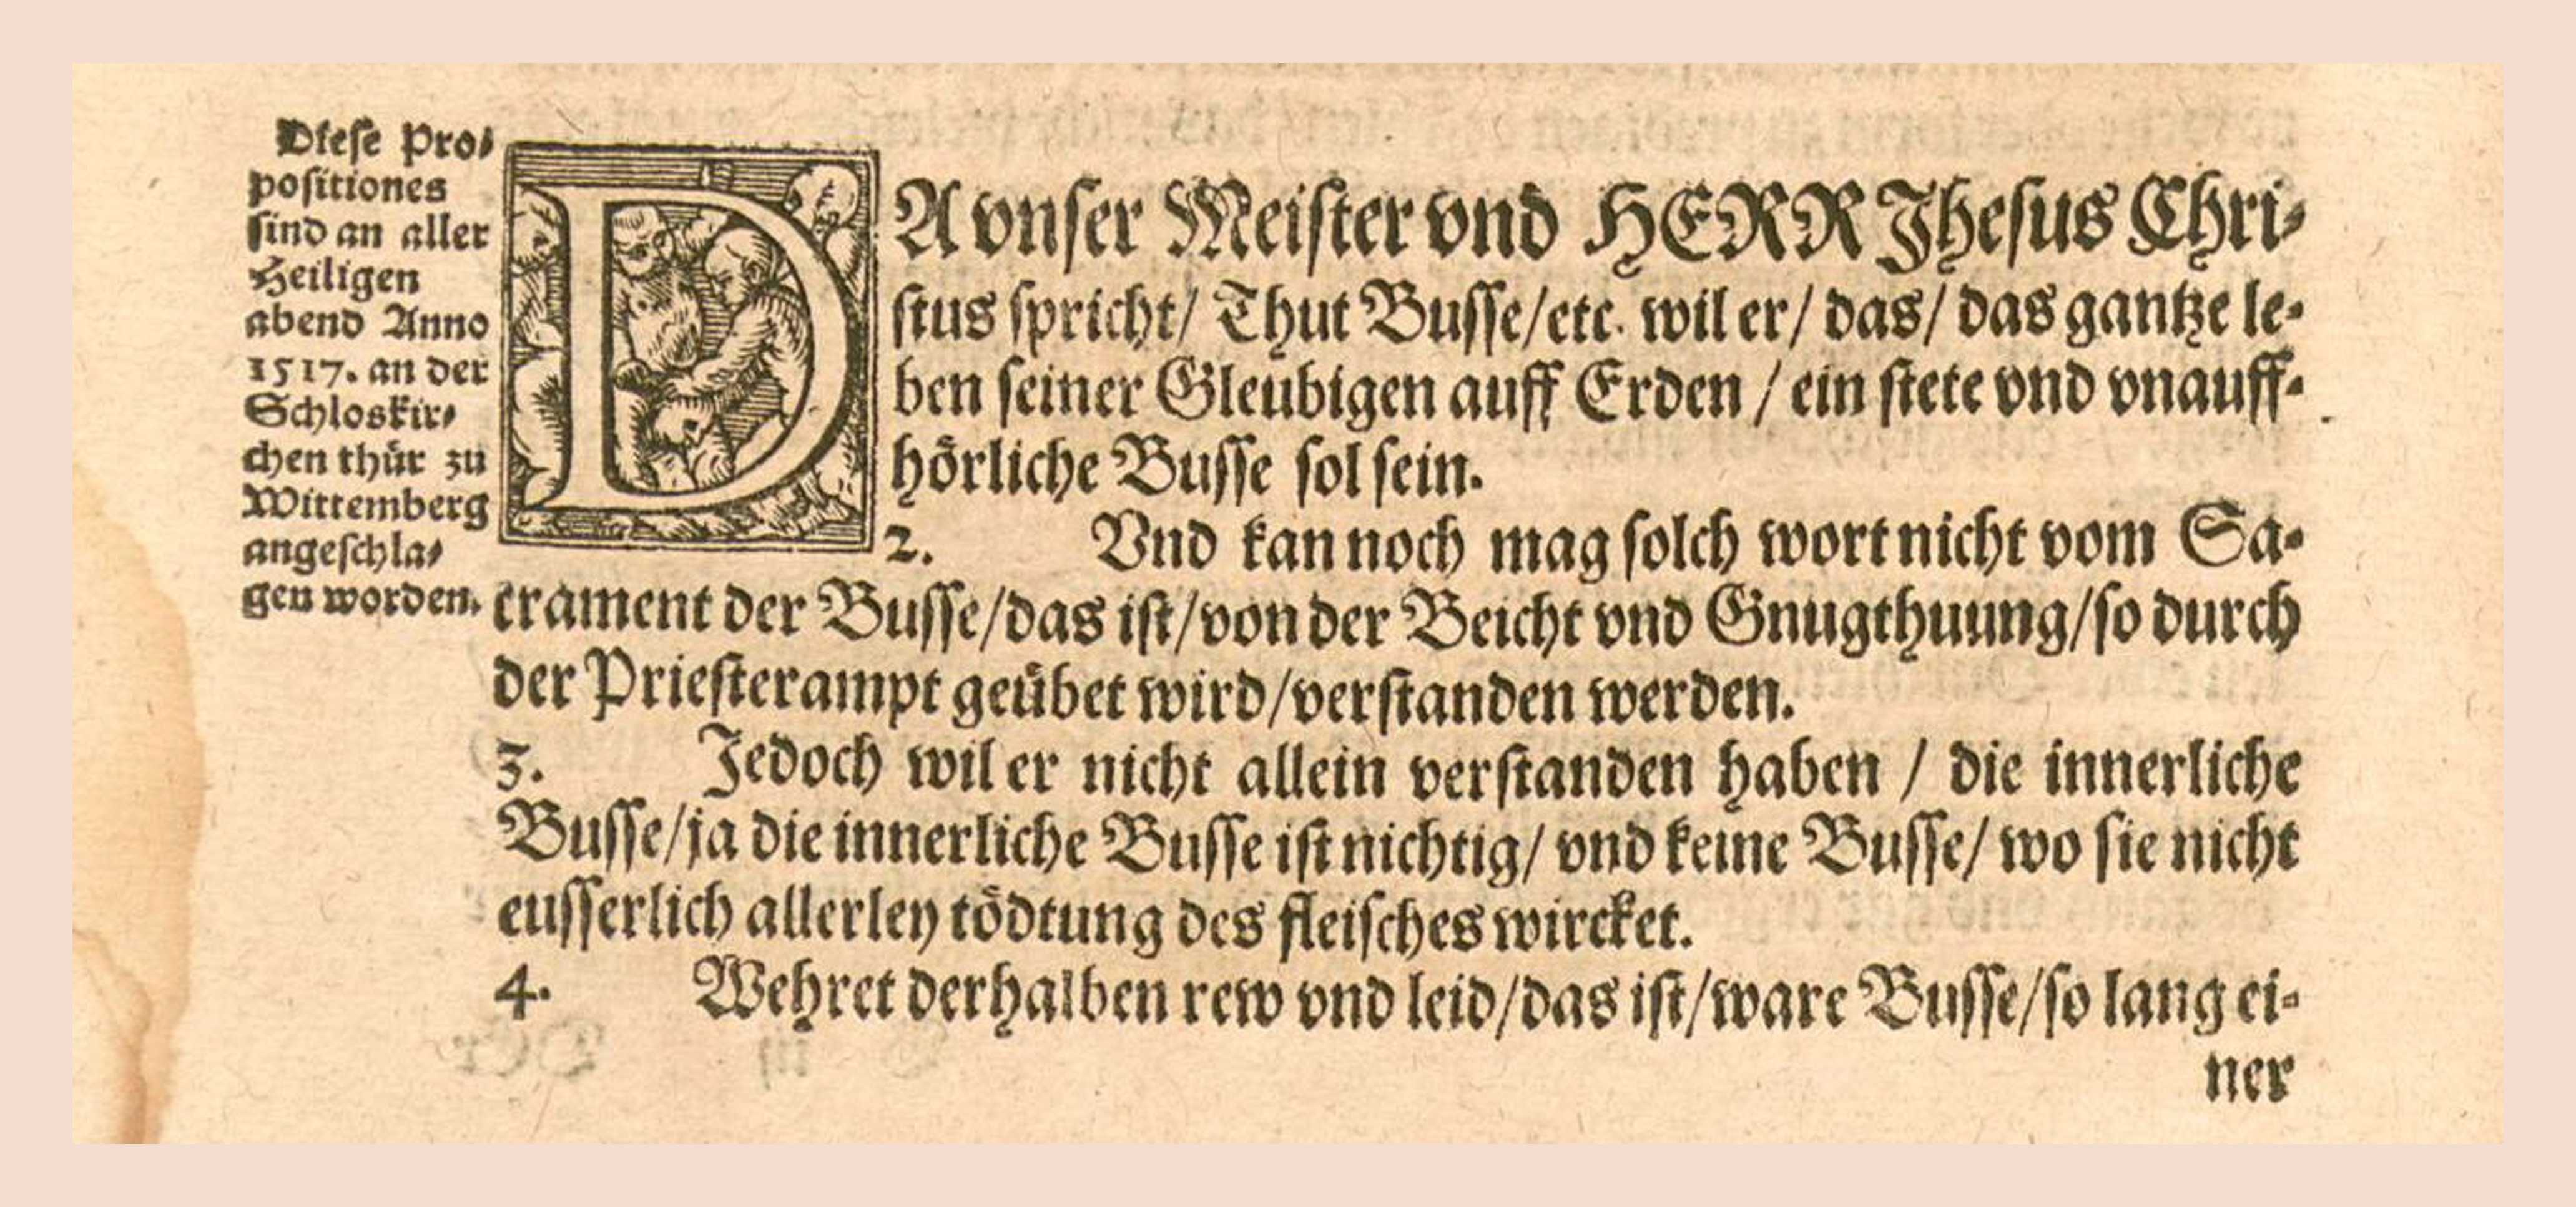 Diese Pro⸗
positiones
sind an aller
Heiligen
abend Anno
1517. an der
Schloskir⸗
chen thür zu
Wittemberg
angeschla⸗
gen worden.
DA vnser Meister vnd HERR Jhesus Chri⸗
stus spricht/ Thut Busse/etc. wil er/ das/ das gantze le⸗
ben seiner Gleubigen auff Erden / ein stete vnd vnauff⸗
hörliche Busse sol sein.
2. Vnd kan noch mag solch wort nicht vom Sa⸗
crament der Busse/das ist/von der Beicht vnd Gnugthuung/so durch
der Priesterampt geübet wird/verstanden werden.
3. Jedoch wil er nicht allein verstanden haben / die innerliche
Busse/ja die innerliche Busse ist nichtig/ vnd keine Busse/ wo sie nicht
eusserlich allerley tödtung des fleisches wircket.
4. Wehret derhalben rew vnd leid/das ist/ware Busse/so lang ei⸗
ner